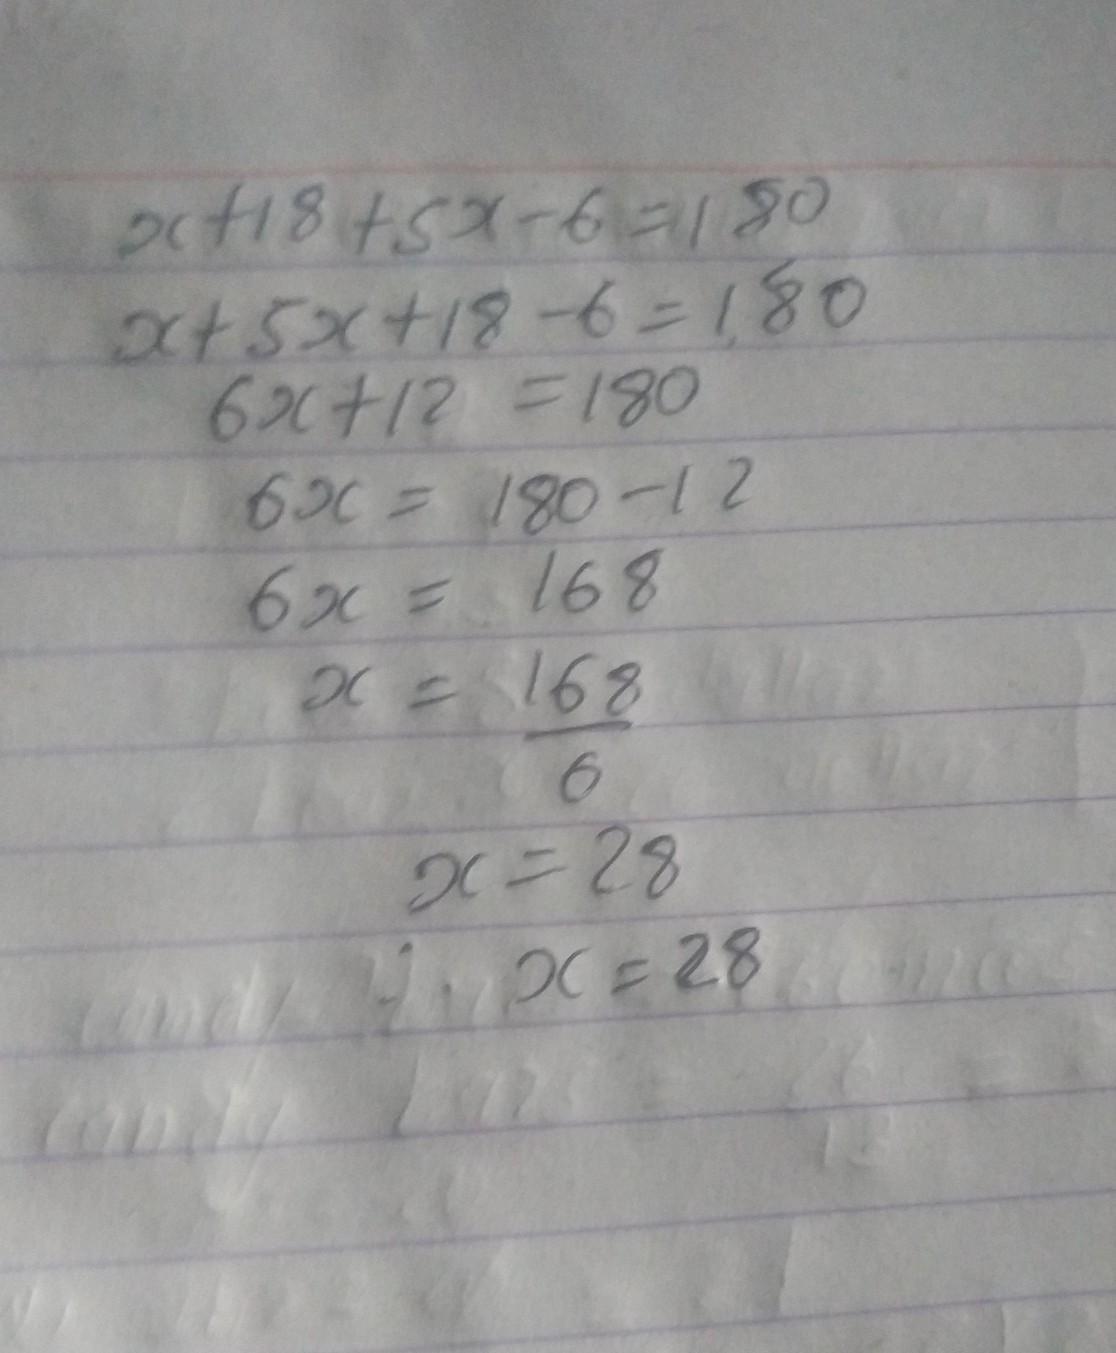 x+18+5x-6=180
x+5x+18-6=180
6x+12=180
6x=180-12
6x=168
x=168
6
x=28
∴ x=28